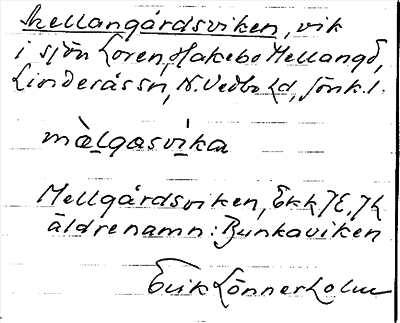 Mellangårdsviken, vik
i sjön Loren, Hakebo Mellangd,
Linderås sn, N. Vedbo hd, Jönk. l.
mälgasvika
Mellgårdsviken, Ekk 7E, 7h
äldre namn: Bunkaviken
Erik Lönnerholm